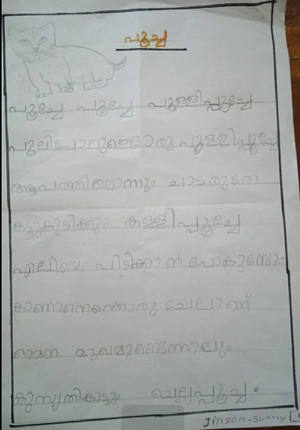 പൂച്ച
പൂച്ചേ പൂച്ചേ പുള്ളിപ്പൂച്ചേ
പുലിപോലുള്ളൊരു പുള്ളിപ്പൂച്ചേ
ആപത്തിലൊന്നും ചാടരുതേ
കട്ടുകുടിക്കും കള്ളിപ്പൂച്ചേ
എലിയെ പിടിക്കാൻ പോകുമ്പോ-
കാണാനെന്തൊരു ചേലാണ്
ഓമന മുഖമുണ്ടെന്നാലും
കുസൃതികാട്ടും ചെല്ലപ്പൂച്ച.
Jinson-Sunny